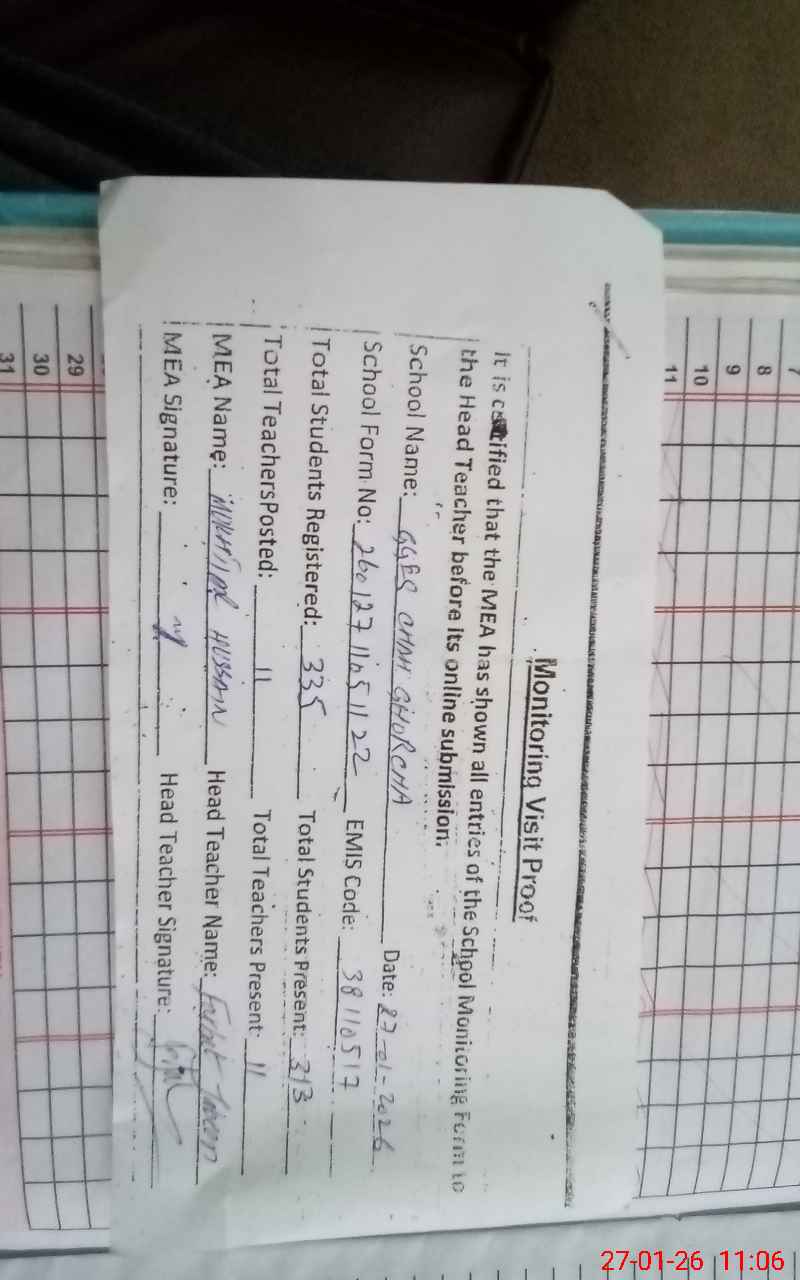 Monitoring Visit Proof
It is certified that the MEA has shown all entries of the School Monitoring Form to
the Head Teacher before its online submission.
School Name: GGES CHAH GHORCHA Date: 27-01-2026
School Form No: 26012711051122 EMIS Code: 38110517
Total Students Registered: 335 Total Students Present: 313
Total TeachersPosted: 11 Total Teachers Present: 11
MEA Name: HUSSAIN Head Teacher Name:
MEA Signature: Head Teacher Signature:
7
8
9
10
11
29
30
31
27-01-26 11:06